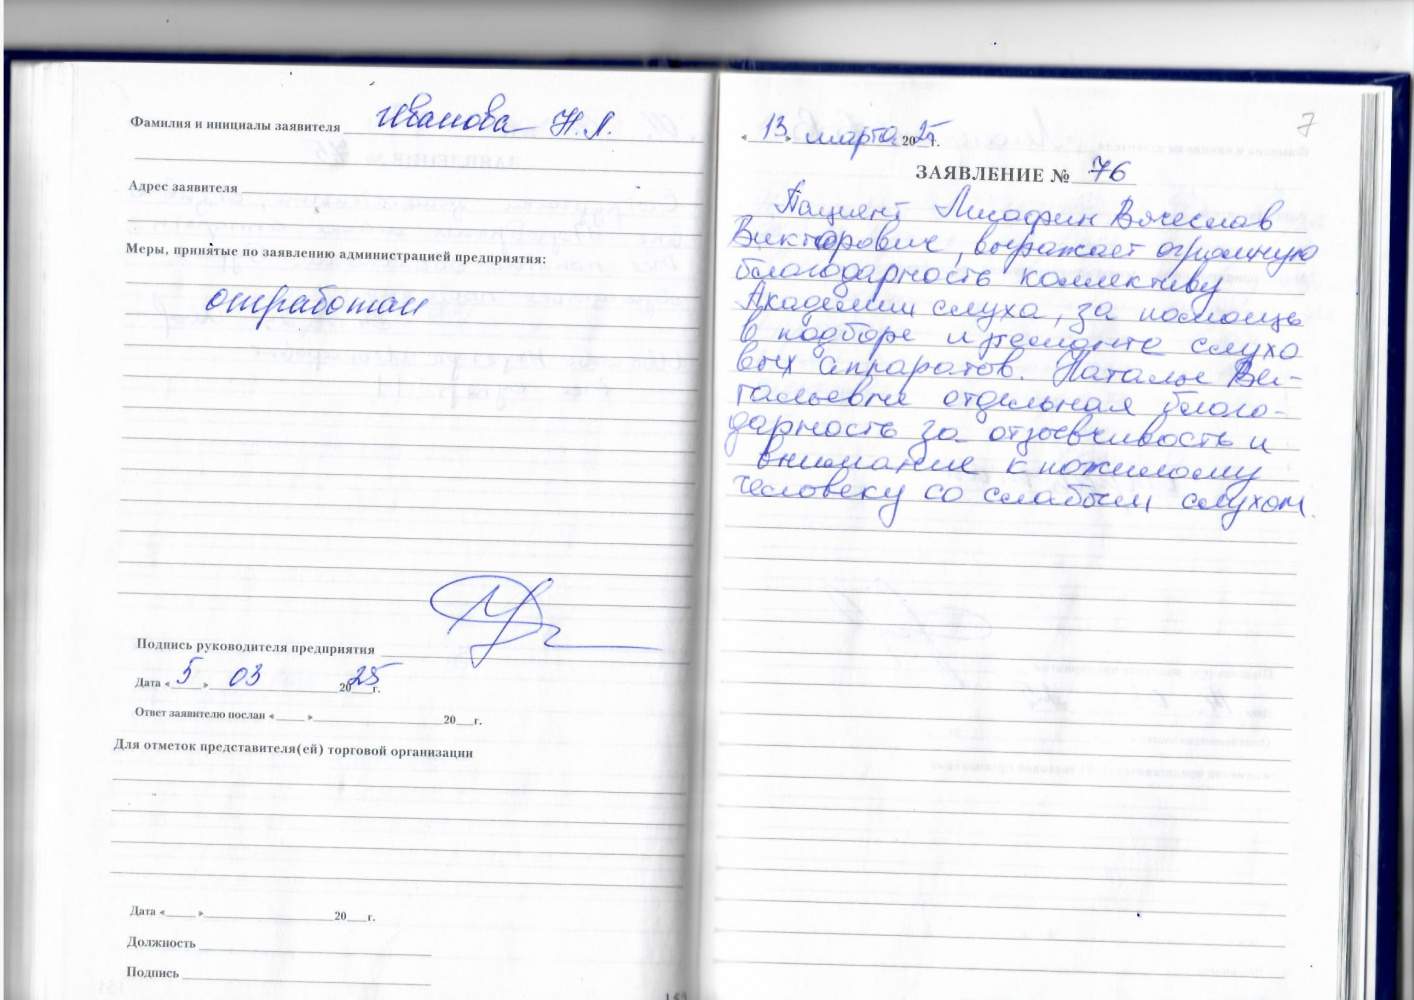 Фамилия и инициалы заявителя Иванова Н. Л.
Адрес заявителя
Меры, принятые по заявлению администрацией предприятия:
отработан
Подпись руководителя предприятия
Дата « 5 » 03 2025 г.
Ответ заявителю послан « » 20 г.
Для отметок представителя(ей) торговой организации
Дата « » 20 г.
Должность
Подпись
7
« 13 » марта 2025 г.
ЗАЯВЛЕНИЕ № 76
Пациент Вячеслав
Викторович, выражает огромную
благодарность коллективу
Академии слуха, за помощь
в подборе и ремонте слухо
вых аппаратов. Наталье Ви-
тальевне отдельная благо-
дарность за отзывчивость и
внимание к пожилому
человеку со слабым слухом.